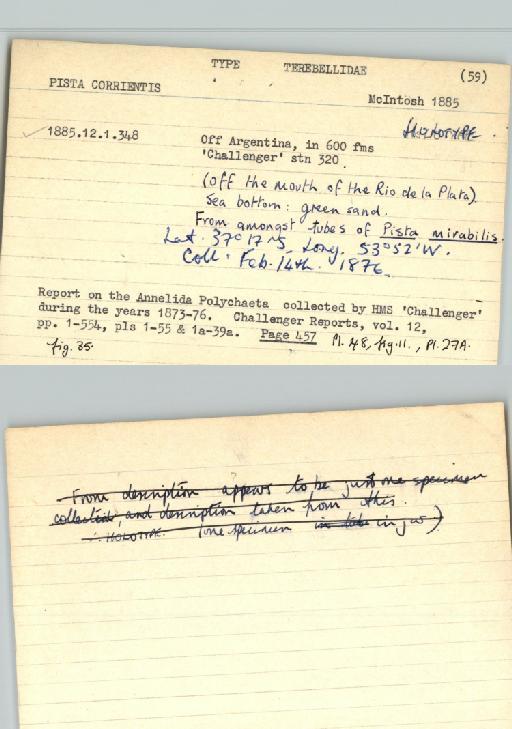 TYPE TEREBELLIDAE (59)
PISTA CORRIENTIS
McIntosh 1885
1885.12.1.348
Off Argentina, in 600 fms
'Challenger' stn 320
(off the mouth of the Rio de la Plata).
Sea bottom: green sand.
From amongst tubes of Pista mirabilis.
Lat. 37° 17'S, Long. 53°52'W.
Coll. Feb. 14th. 1876.
Report on the Annelida Polychaeta collected by HMS 'Challenger'
during the years 1873-76. Challenger Reports, vol. 12,
pp. 1-554, pls 1-55 & 1a-39a. Page 457 Pl. 48, fig. 11., Pl. 27A.
fig. 25.
From description appears to be just one specimen
collected, and description taken from this.
∴ HOLOTYPE. (one specimen in tube in jar)